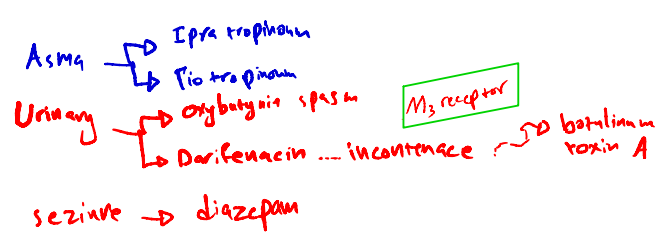 Asma
Ipra tropinoum
Tio tropinoum
Urinary
Oxybutynin spasm
M3 receptor
Darifenacin .... incontenace
botulinum
toxin A
seziure
diazepam